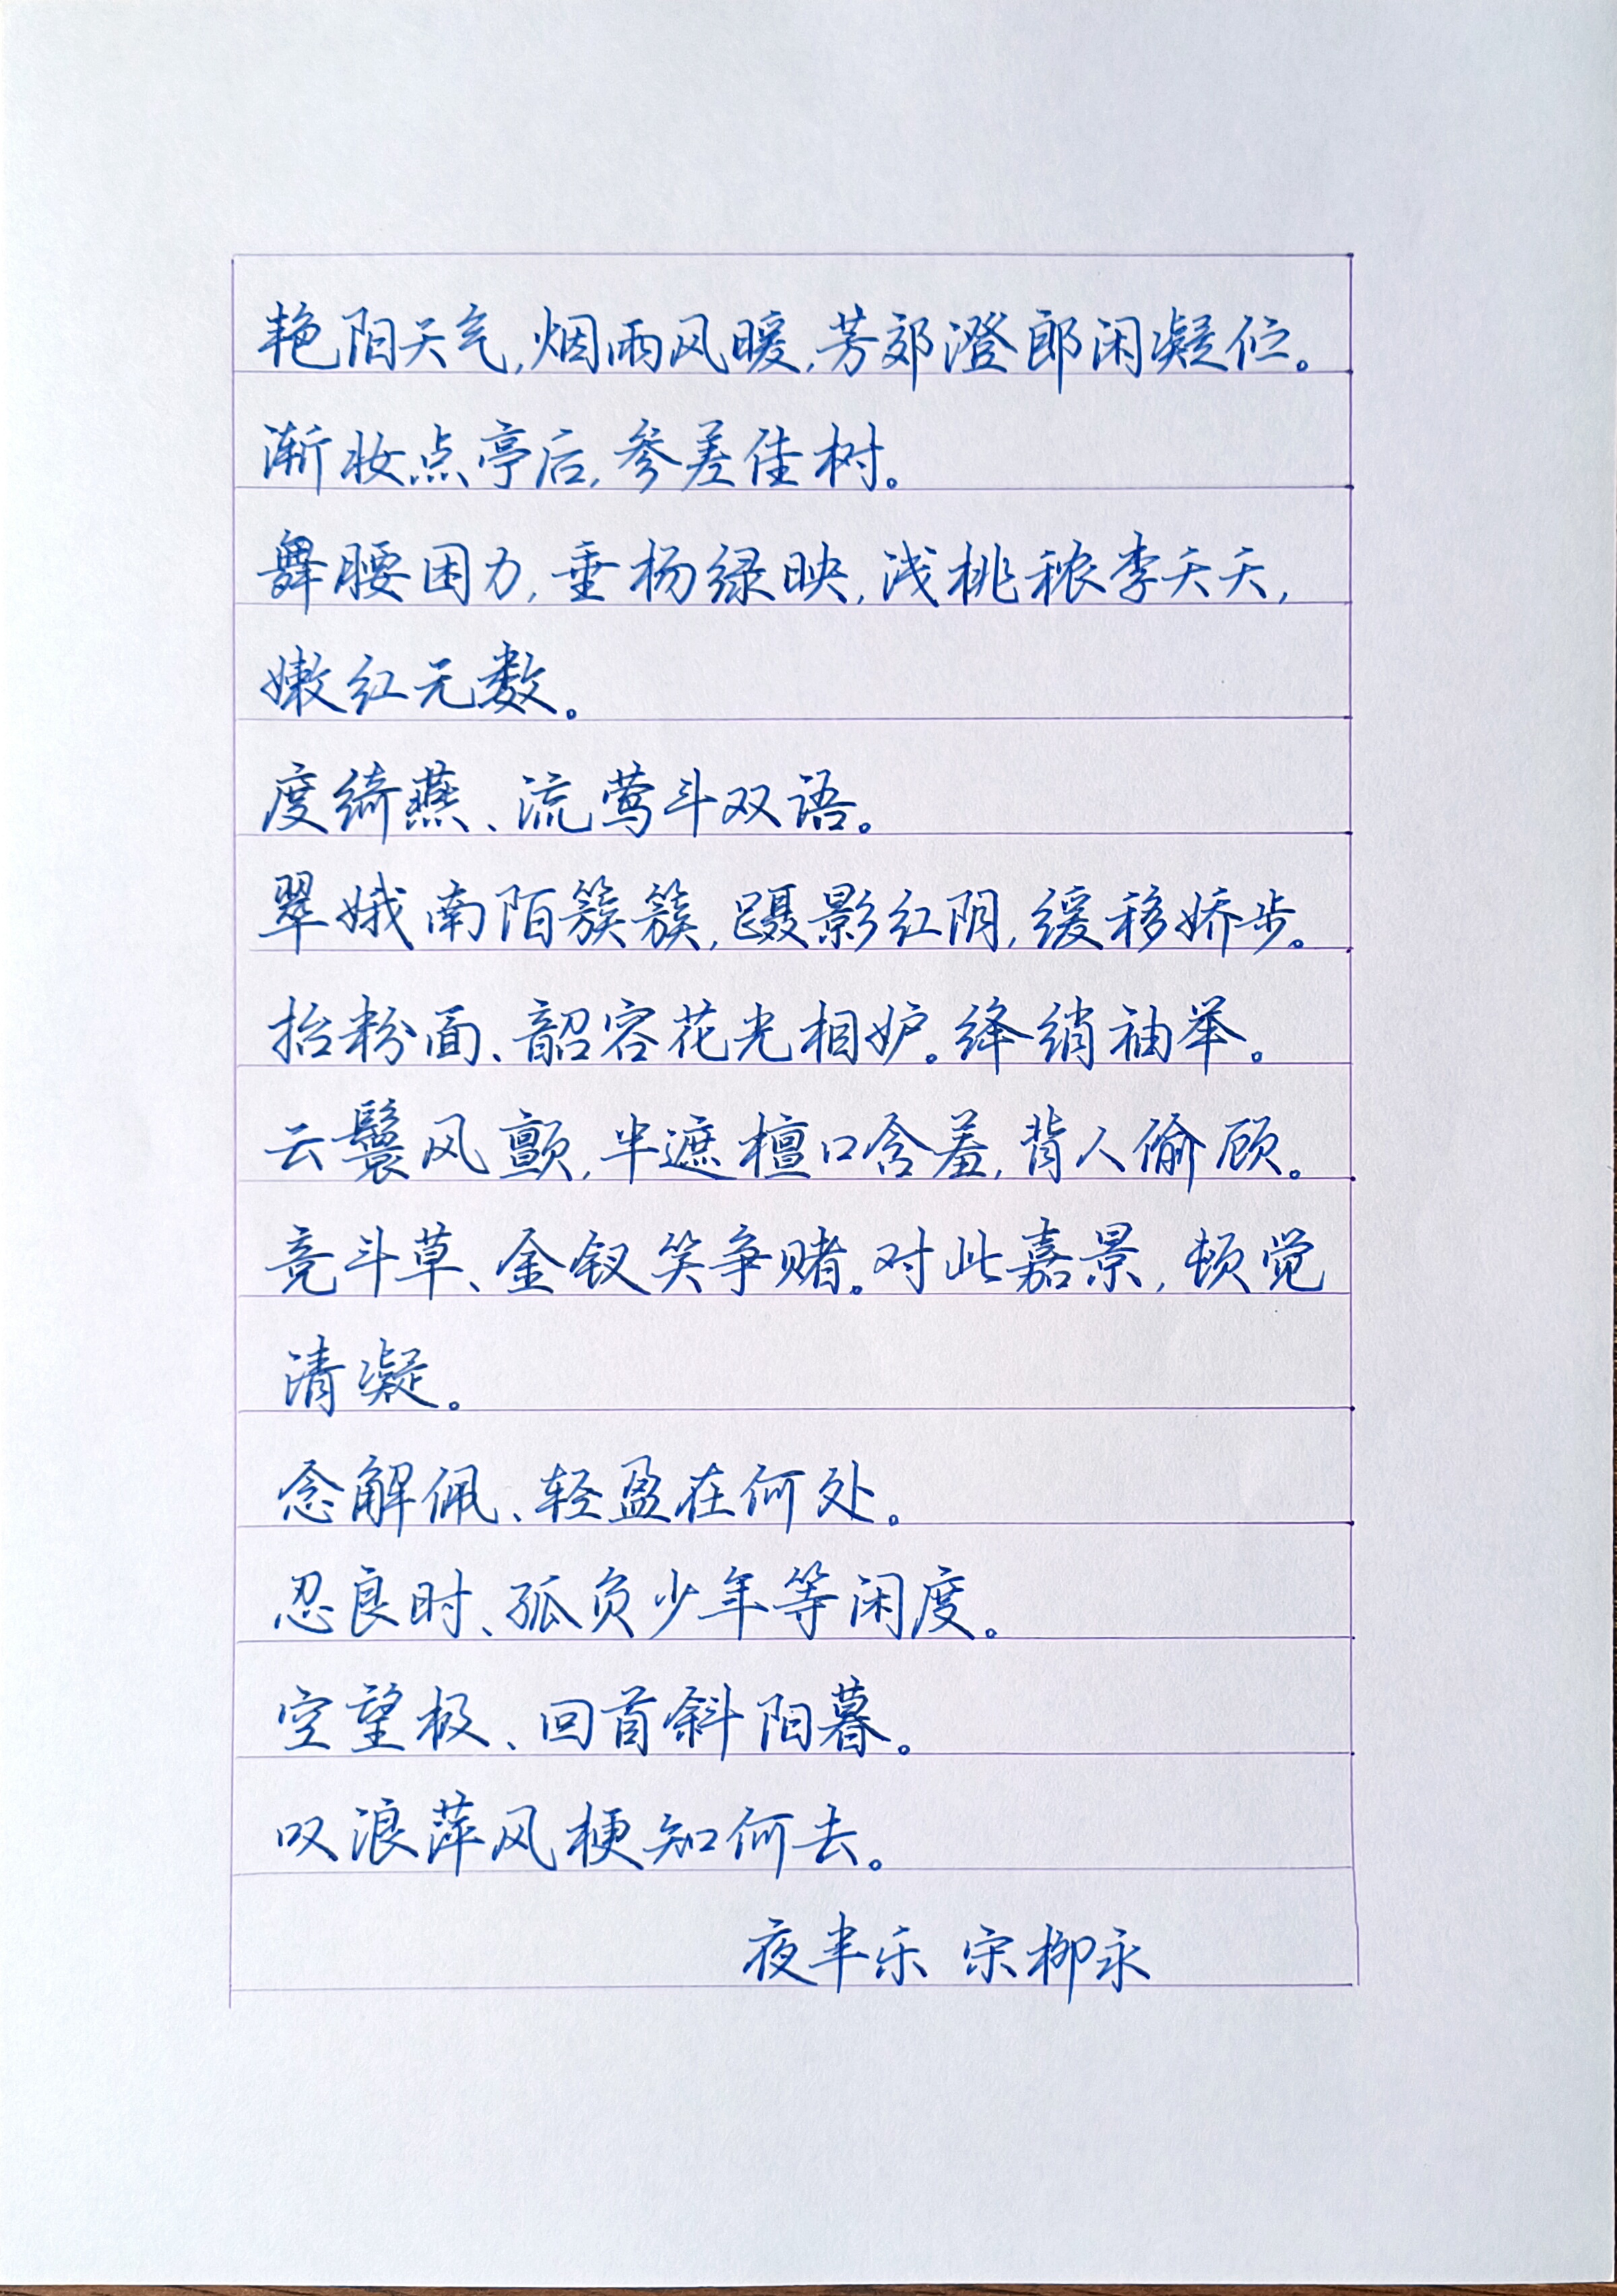 艳阳天气,烟雨风暖,芳郊澄郎闲凝伫。
渐妆点亭后,参差佳树。
舞腰困力,垂杨绿映,浅桃秾李夭夭,
嫩红无数。
度绮燕、流莺斗双语。
翠娥南陌簇簇,蹑影红阴,缓移娇步。
抬粉面、韶容花光相妒。绛绡袖举。
云鬟风颤,半遮檀口含羞,背人偷顾。
竞斗草、金钗笑争赌。对此嘉景,顿觉
清凝。
念解佩、轻盈在何处。
忍良时、孤负少年等闲度。
空望极、回首斜阳暮。
叹浪萍风梗知何去。
夜半乐 宋柳永